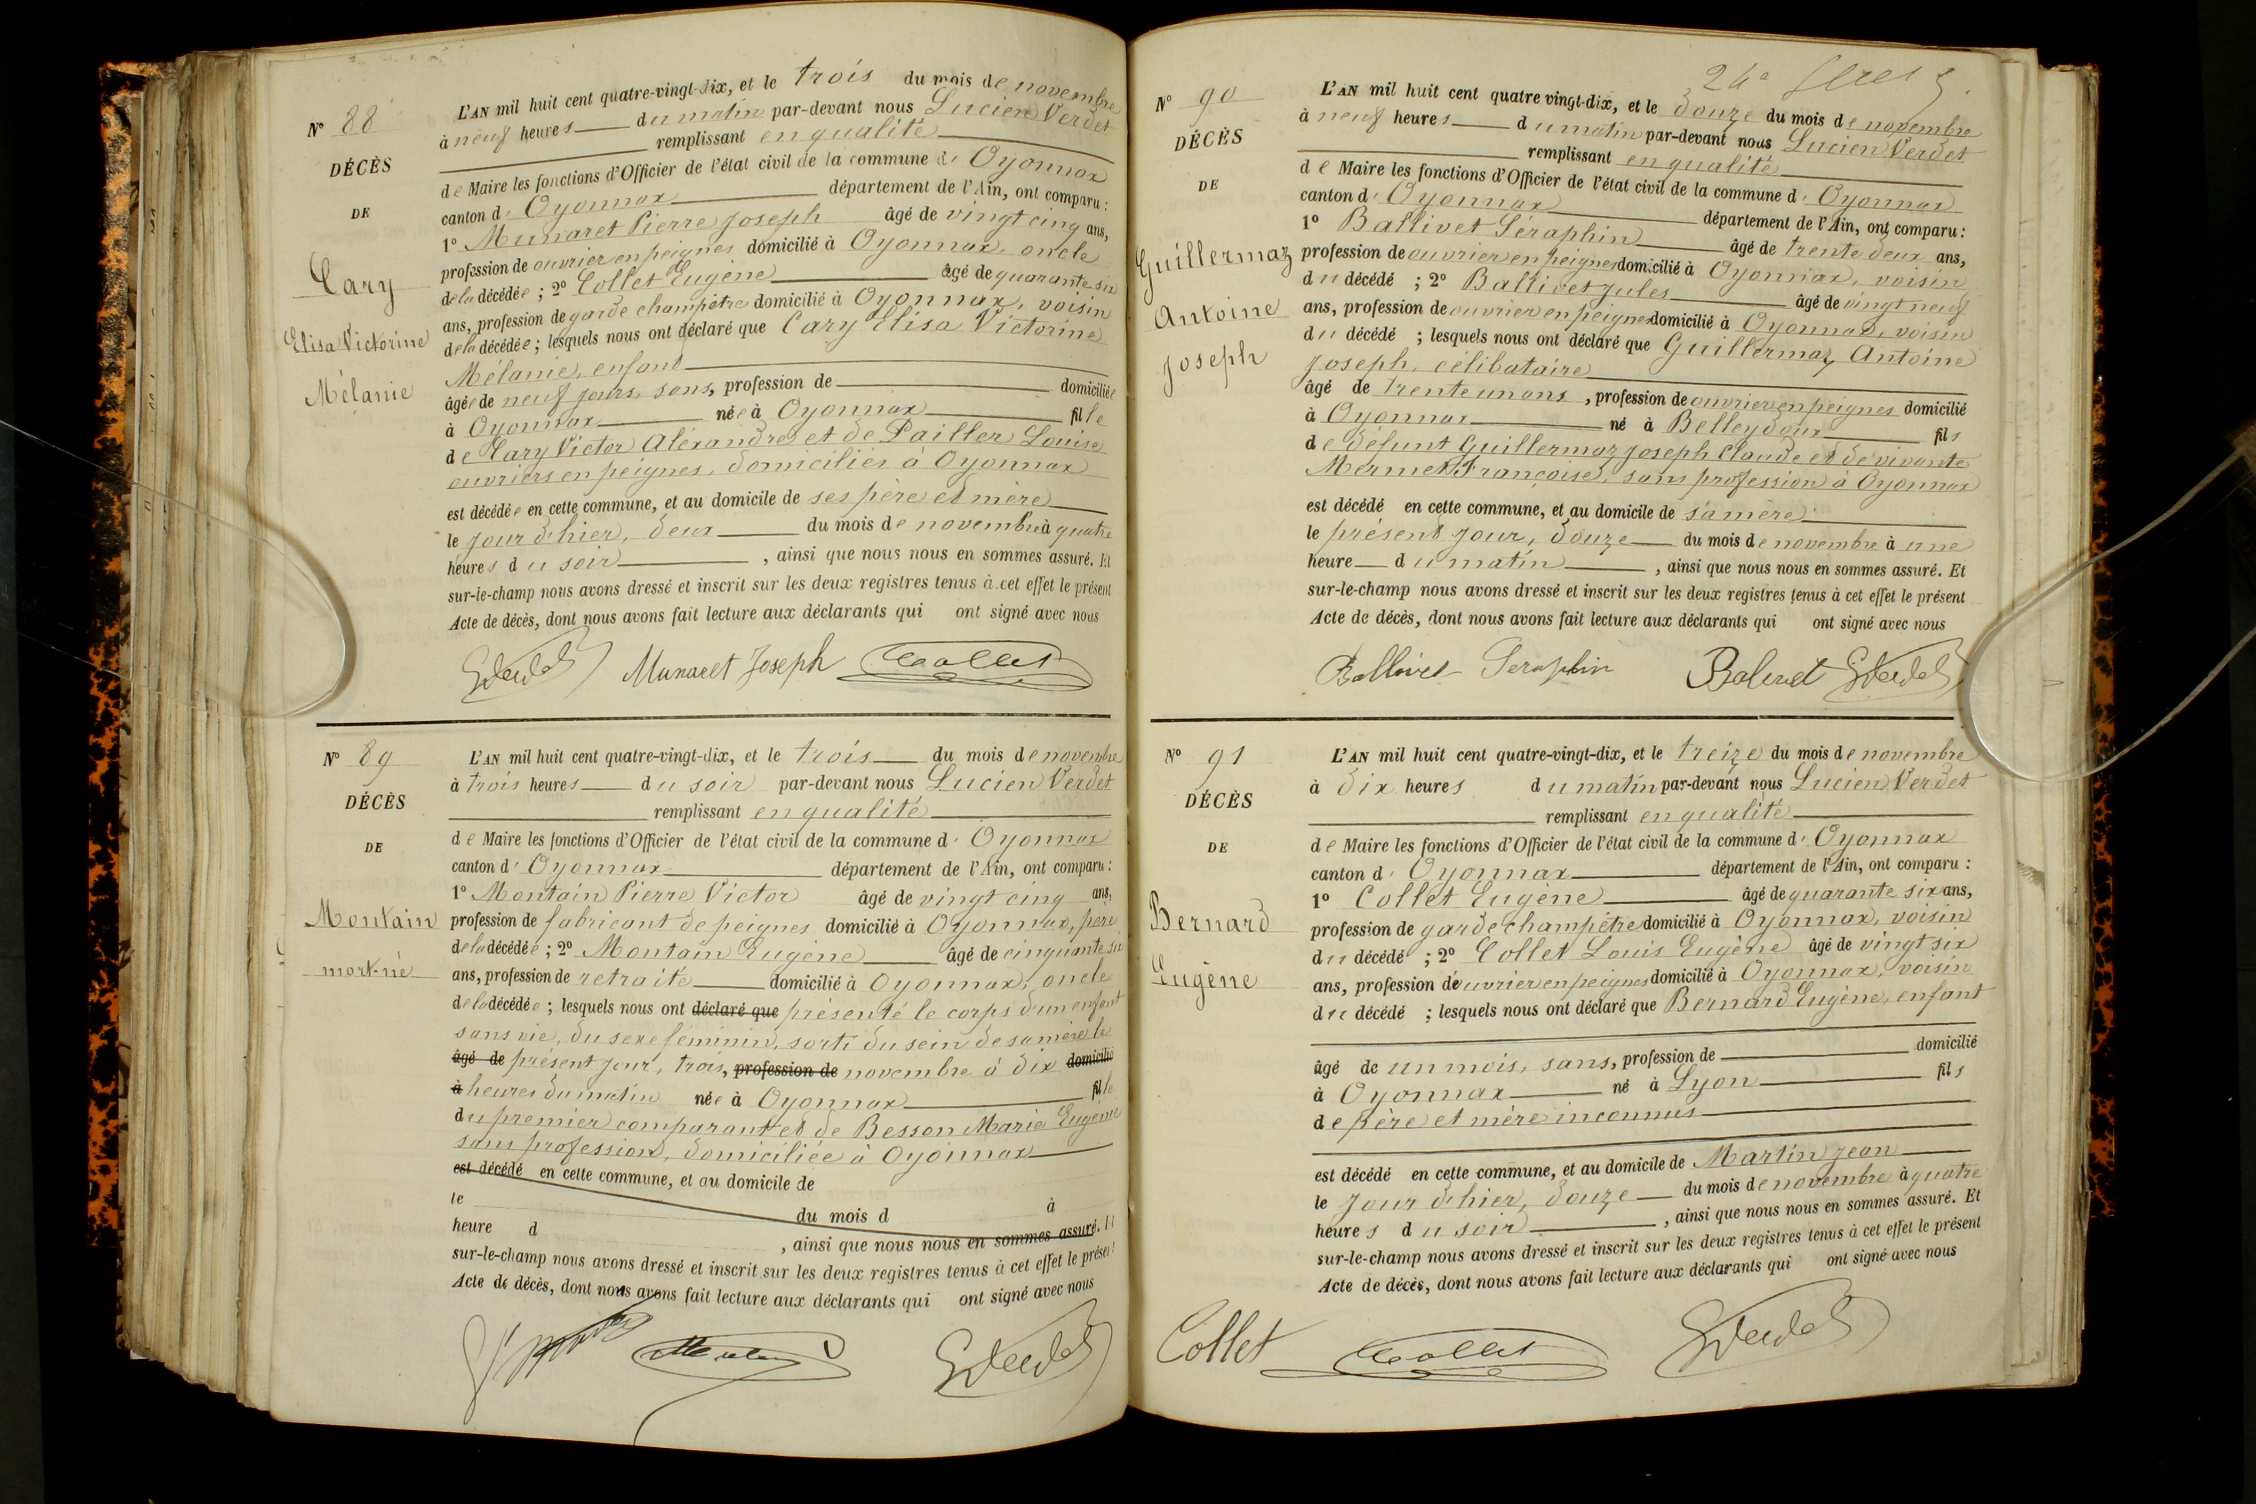 N° 88
DÉCÈS
DE
Cary
Elisa Victorine
Mélanie
L'AN mil huit cent quatre-vingt-dix, et le trois du mois de novembre
à neuf heures du matin par-devant nous Lucien Verdet
remplissant en qualité
de Maire les fonctions d'Officier de l'état civil de la commune d' Oyonnax
canton d' Oyonnax département de l'Ain, ont comparu :
1° Munaret Pierre Joseph âgé de vingt cinq ans,
profession de ouvrier en peignes domicilié à Oyonnax, oncle
de la décédée ; 2° Collet Eugène âgé de quarante six
ans, profession de garde champêtre domicilié à Oyonnax, voisin
de la décédée ; lesquels nous ont déclaré que Cary Elisa Victorine
Mélanie, enfant
âgée de neuf jours, sans, profession de domiciliée
à Oyonnax née à Oyonnax fille
de Cary Victor Aléxandre et de Pailler Louise
ouvriers en peignes, domiciliés à Oyonnax
est décédée en cette commune, et au domicile de ses père et mère
le jour d'hier, deux du mois de novembre à quatre
heures du soir, ainsi que nous nous en sommes assuré. Et
sur-le-champ nous avons dressé et inscrit sur les deux registres tenus à cet effet le présent
Acte de décès, dont nous avons fait lecture aux déclarants qui ont signé avec nous
Munaret Joseph Collet
N° 89
DÉCÈS
DE
Montain
mort-né
L'AN mil huit cent quatre-vingt-dix, et le trois du mois de novembre
à trois heures du soir par-devant nous Lucien Verdet
remplissant en qualité
de Maire les fonctions d'Officier de l'état civil de la commune d' Oyonnax
canton d' Oyonnax département de l'Ain, ont comparu :
1° Montain Pierre Victor âgé de vingt cinq ans,
profession de fabricant de peignes domicilié à Oyonnax, père
de la décédée ; 2° Montain Eugène âgé de cinquante six
ans, profession de retraité domicilié à Oyonnax, oncle
de la décédée ; lesquels nous ont déclaré que présenté le corps d'un enfant
sans vie, du sexe féminin, sorti du sein de sa mère le
âgé de présent jour, trois, profession de novembre à dix domicilié
à heures du matin née à Oyonnax fille
du premier comparant et de Besson Marie Eugénie
sans profession, domiciliée à Oyonnax
est décédé en cette commune, et au domicile de
le du mois d à
heure d , ainsi que nous nous en sommes assuré. Et
sur-le-champ nous avons dressé et inscrit sur les deux registres tenus à cet effet le présent
Acte de décès, dont nous avons fait lecture aux déclarants qui ont signé avec nous
N° 90
DÉCÈS
DE
Guillermaz
Antoine
Joseph
24e
L'AN mil huit cent quatre vingt-dix, et le douze du mois de novembre
à neuf heures du matin par-devant nous Lucien Verdet
remplissant en qualité
de Maire les fonctions d'Officier de l'état civil de la commune d' Oyonnax
canton d' Oyonnax département de l'Ain, ont comparu :
1° Ballivet Séraphin âgé de trente deux ans,
profession de ouvrier en peignes domicilié à Oyonnax, voisin
du décédé ; 2° Ballivet Jules âgé de vingt neuf
ans, profession de ouvrier en peignes domicilié à Oyonnax, voisin
du décédé ; lesquels nous ont déclaré que Guillermaz Antoine
Joseph, célibataire
âgé de trente un ans, profession de ouvrier en peignes domicilié
à Oyonnax né à Belleydoux fils
de défunt Guillermaz Joseph Claude et de vivante
Mermet Françoise, sans profession à Oyonnax
est décédé en cette commune, et au domicile de sa mère
le présent jour, douze du mois de novembre à une
heure du matin, ainsi que nous nous en sommes assuré. Et
sur-le-champ nous avons dressé et inscrit sur les deux registres tenus à cet effet le présent
Acte de décès, dont nous avons fait lecture aux déclarants qui ont signé avec nous
Ballivet Seraphin Balivet
N° 91
DÉCÈS
DE
Bernard
Eugène
L'AN mil huit cent quatre-vingt-dix, et le treize du mois de novembre
à dix heures du matin par-devant nous Lucien Verdet
remplissant en qualité
de Maire les fonctions d'Officier de l'état civil de la commune d' Oyonnax
canton d' Oyonnax département de l'Ain, ont comparu :
1° Collet Eugène âgé de quarante six ans,
profession de garde champêtre domicilié à Oyonnax, voisin
du décédé ; 2° Collet Louis Eugène âgé de vingt six
ans, profession d'ouvrier en peignes domicilié à Oyonnax, voisin
du décédé ; lesquels nous ont déclaré que Bernard Eugène, enfant
âgé de un mois, sans, profession de domicilié
à Oyonnax né à Lyon fils
de père et mère inconnus
est décédé en cette commune, et au domicile de Martin Jean
le jour d'hier, douze du mois de novembre à quatre
heures du soir, ainsi que nous nous en sommes assuré. Et
sur-le-champ nous avons dressé et inscrit sur les deux registres tenus à cet effet le présent
Acte de décès, dont nous avons fait lecture aux déclarants qui ont signé avec nous
Collet Collet